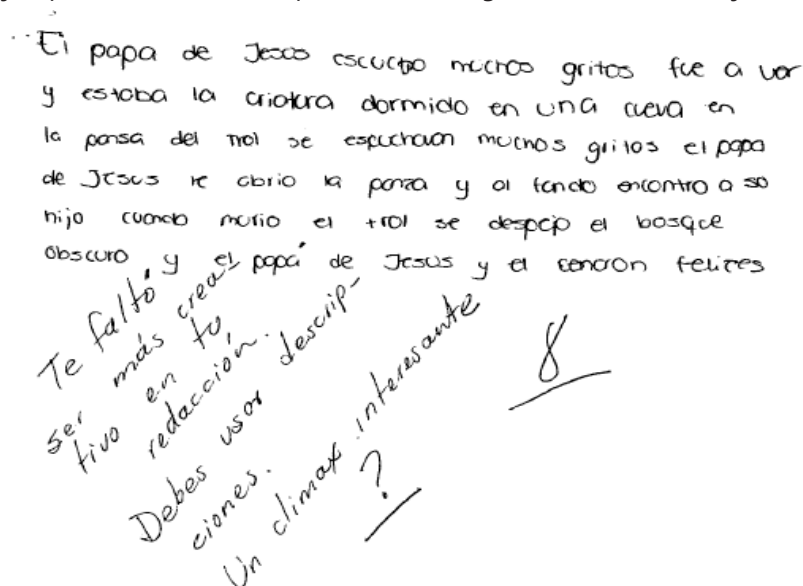 El papa de Jesus escucho muchos gritos fue a ver
y estaba la criatura dormido en una cueva en
la pansa del trol se escuchaun muchos gritos el papa
de Jesus le abrio la panza y al fondo encontro a so
hijo cuando murio el trol se despejo el bosque
obscuro y el papá de Jesus y el felices
Te faltó
ser más crea-
tivo en tu
redacción.
Debes usar descrip-
ciones.
Un climax interesante
?
8